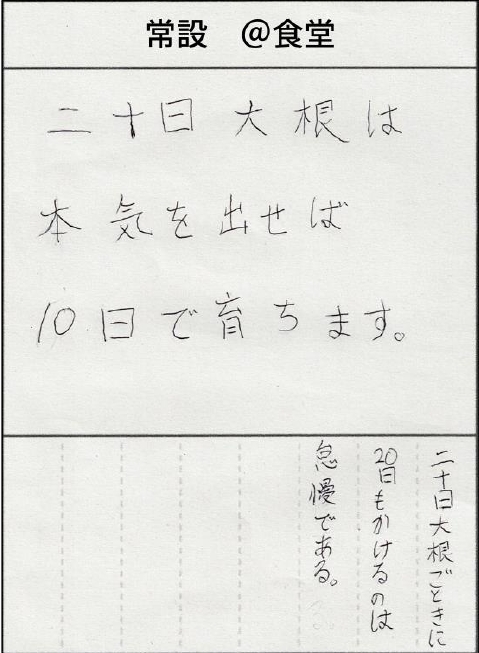 常設　@食堂
二十日大根は
本気を出せば
10日で育ちます。
二十日大根ごときに
20日もかけるのは
怠慢である。